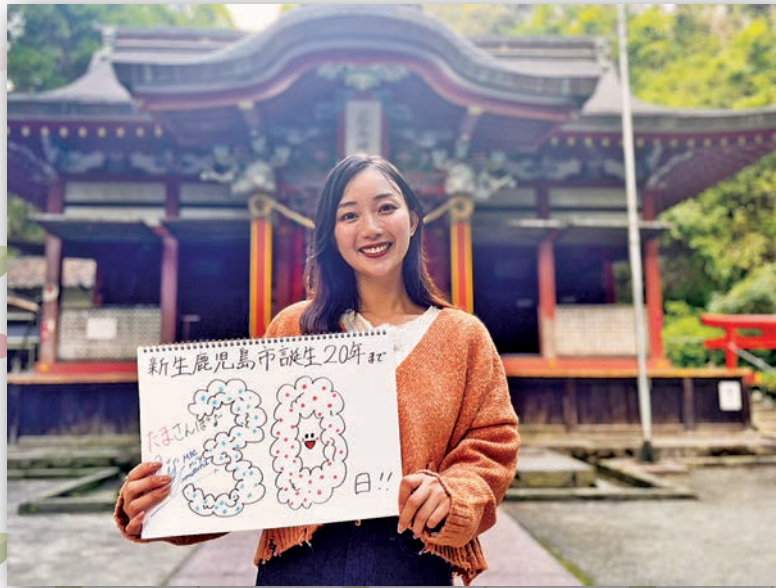 新生鹿児島市誕生20年まで
たまさんぽ♪
30
日!!